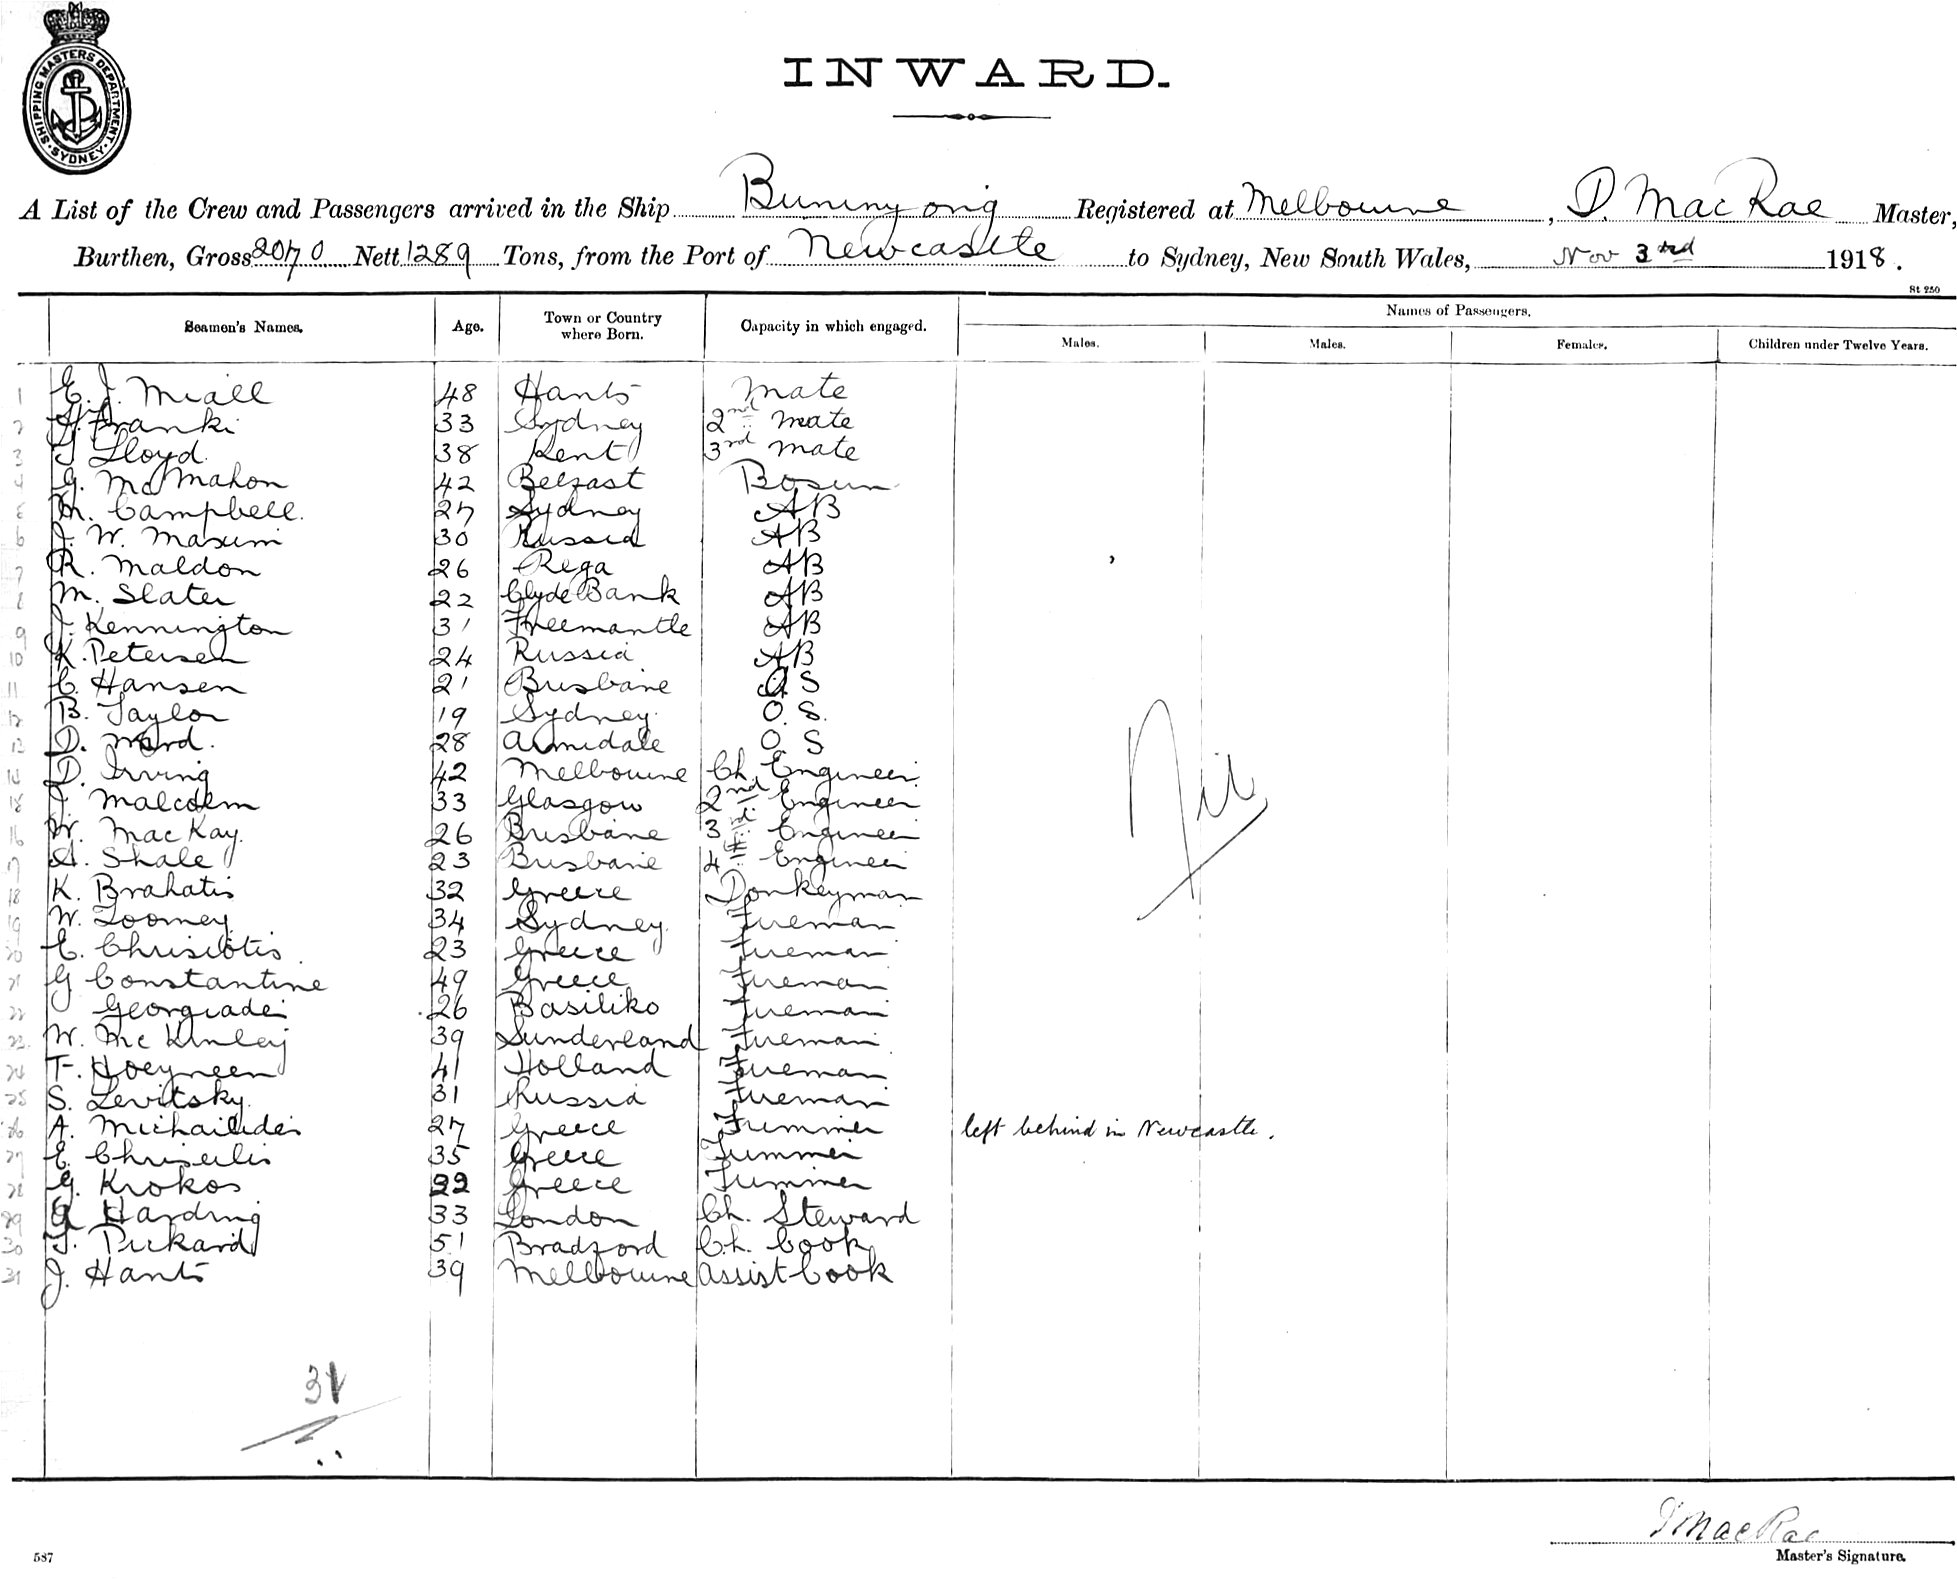 SHIPPING MASTERS DEPARTMENT. SYDNEY.
INWARD.
A List of the Crew and Passengers arrived in the Ship Buninyong Registered at Melbourne, D. MacRae Master,
Burthen, Gross 2070 Nett 1289 Tons, from the Port of Newcastle to Sydney, New South Wales, Nov 3rd 1918.
St 250
Seamen's Names. Age. Town or Country where Born. Capacity in which engaged. Names of Passengers.
Males. Males. Females. Children under Twelve Years.
1 E. J. Miall 48 Hants Mate
2 H. Franki 33 Sydney 2nd Mate
3 Lloyd 38 Kent 3rd Mate
4 G. McMahon 42 Belfast Bosun
5 M. Campbell. 27 Sydney AB
6 J. W. Maxim 30 Russia AB
7 R. Maldon 26 Rega AB
8 M. Slater 22 Clyde Bank AB
9 J. Kennington 31 Freemantle AB
10 K. Petersen 24 Russia AB
11 C. Hansen 21 Brisbane O S
12 B. Taylor 19 Sydney O. S.
13 D. Ward. 28 Armidale O S
14 D. Irving 42 Melbourne Ch. Engineer
15 J. Malcolm 33 Glasgow 2nd Engineer
16 W. MacKay. 26 Brisbane 3rd Engineer
17 A. Shale 23 Brisbane 4th Engineer
18 K. Brahatis 32 Greece Donkeyman
19 W. Toomey 34 Sydney Fireman
20 E. Chrisiotis. 23 Greece Fireman
21 G Constantine 49 Greece Fireman
22 Georgiades 26 Basiliko Fireman
23. W. McKinley 39 Sunderland Fireman
24 F. Hoeyneen 41 Holland Fireman
25 S. Levitsky. 31 Russia Fireman
26 A. Michailides 27 Greece Trimmer left behind in Newcastle.
27 E. 35 Greece Trimmer
28 G. Krokos 22 Greece Trimmer
29 Harding 33 London Ch. Steward
30 T. Pickard 51 Bradford Ch. Cook
31 J. Hants 39 Melbourne Assist Cook
Nil
31
D MacRae
Master's Signature.
587